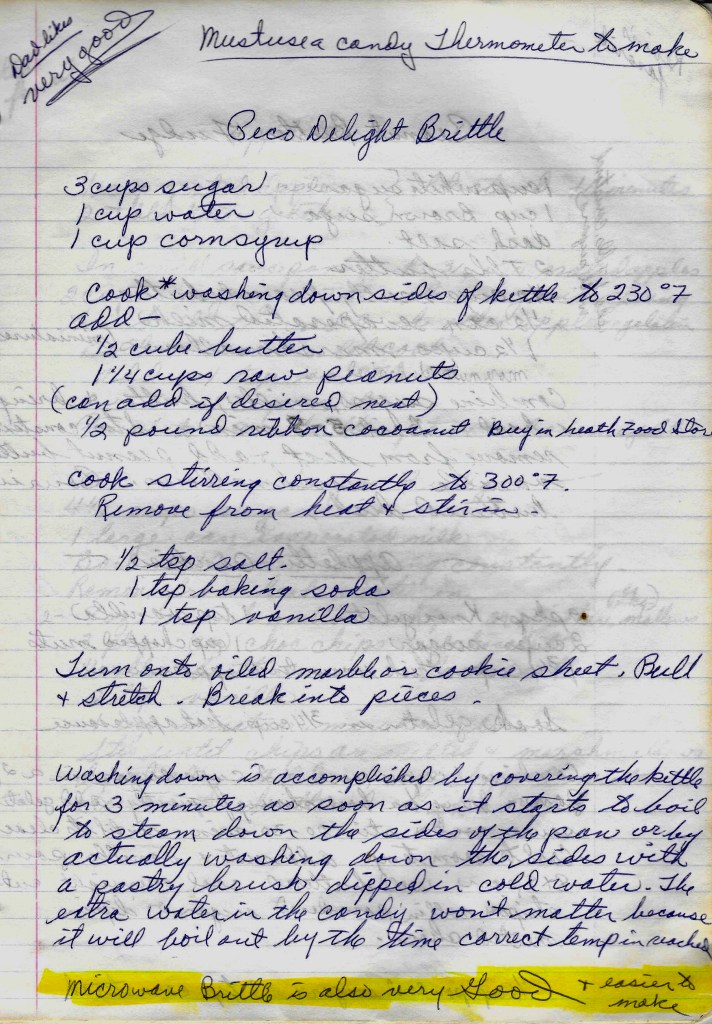 Dad likes
very good
Must use a candy Thermometer to make
Peco Delight Brittle
3 cups sugar
1 cup water
1 cup cornsyrup
Cook * washing down sides of kettle to 230°F
add —
1/2 cube butter
1 1/4 cups raw peanuts
(can add if desired next)
1/2 pound ribbon cocoanut Buy in heath Food Stor
Cook stirring constantly to 300°F.
Remove from heat & stir in -
1/2 tsp salt.
1 tsp baking soda
1 tsp vanilla
Turn onto oiled marble or cookie sheet. Pull
& stretch. Break into pieces.
Washing down is accomplished by covering the kettle
for 3 minutes as soon as it starts to boil
to steam down the sides of the pan or by
actually washing down the sides with
a pastry brush dipped in cold water. The
extra water in the candy won't matter because
it will boil out by the time correct temp is reached
Microwave Brittle is also very Good & easier to
make